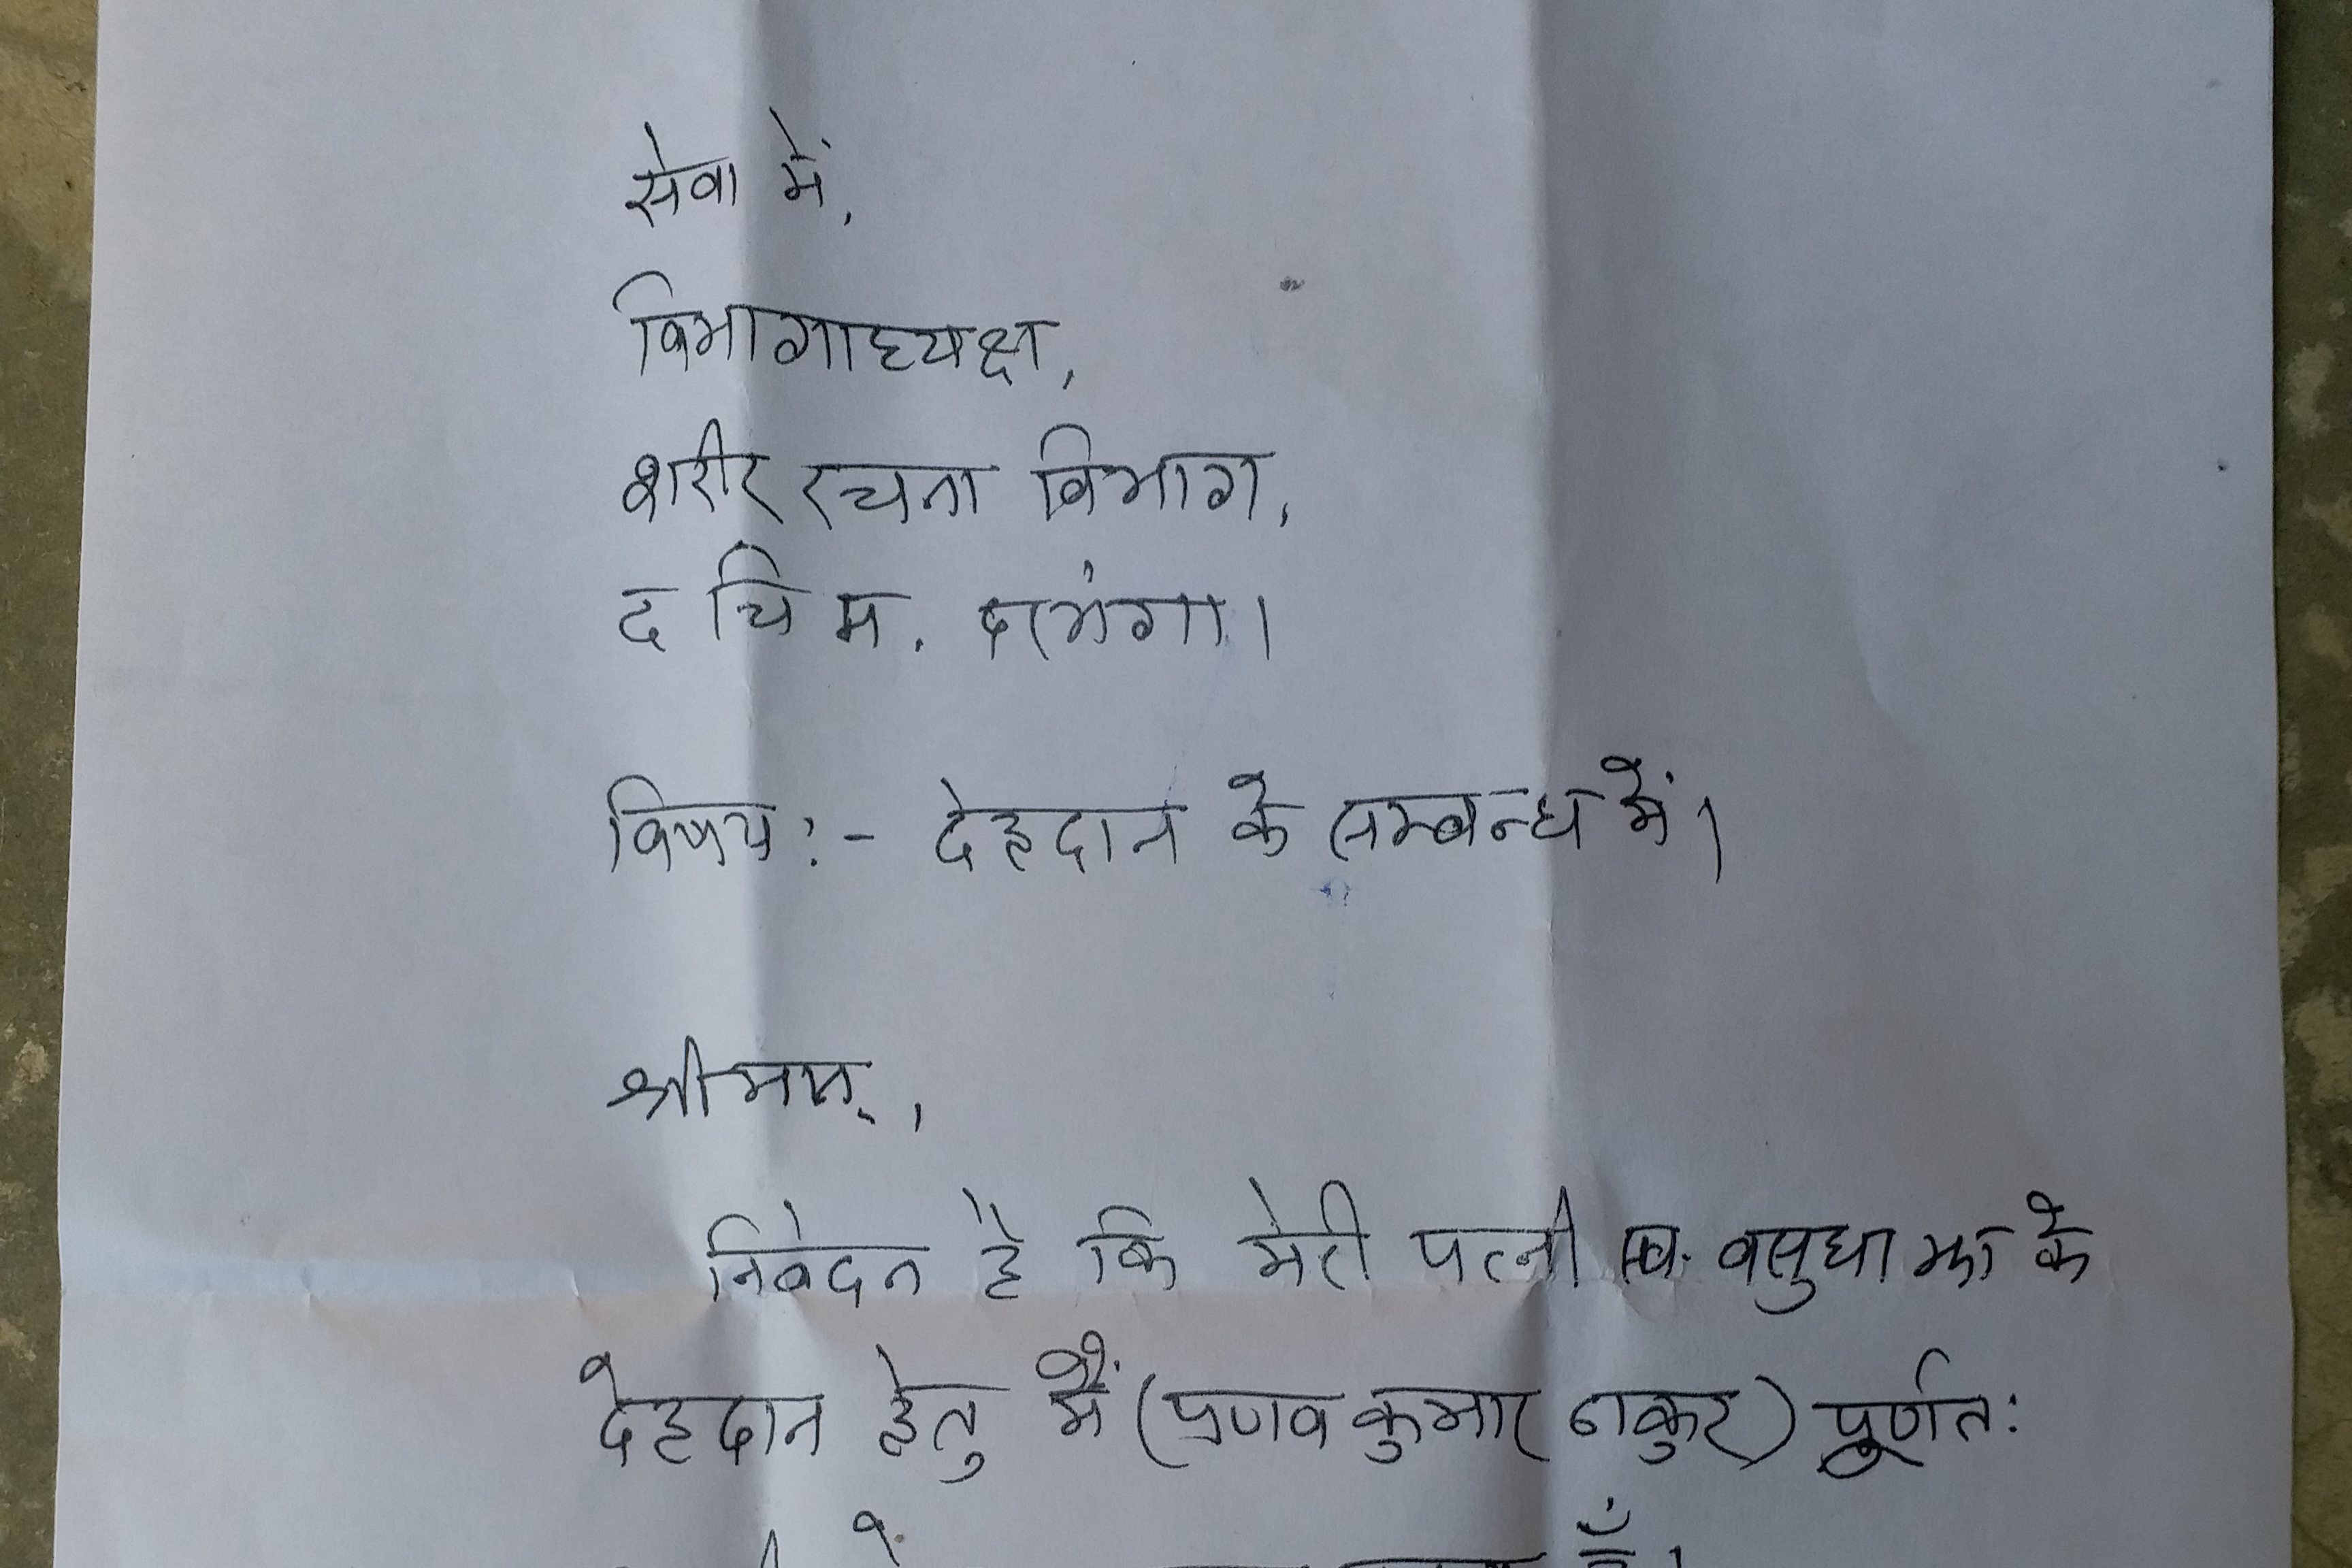 सेवा में,
विभागाध्यक्ष,
शरीर रचना विभाग,
द चि म. दरभंगा।
विषय:- देहदान के सम्बन्ध में।
श्रीमान्,
निवेदन है कि मेरी पत्नी स्व. वसुधा झा के
देहदान हेतु मैं (प्रणव कुमार ठाकुर) पूर्णत: